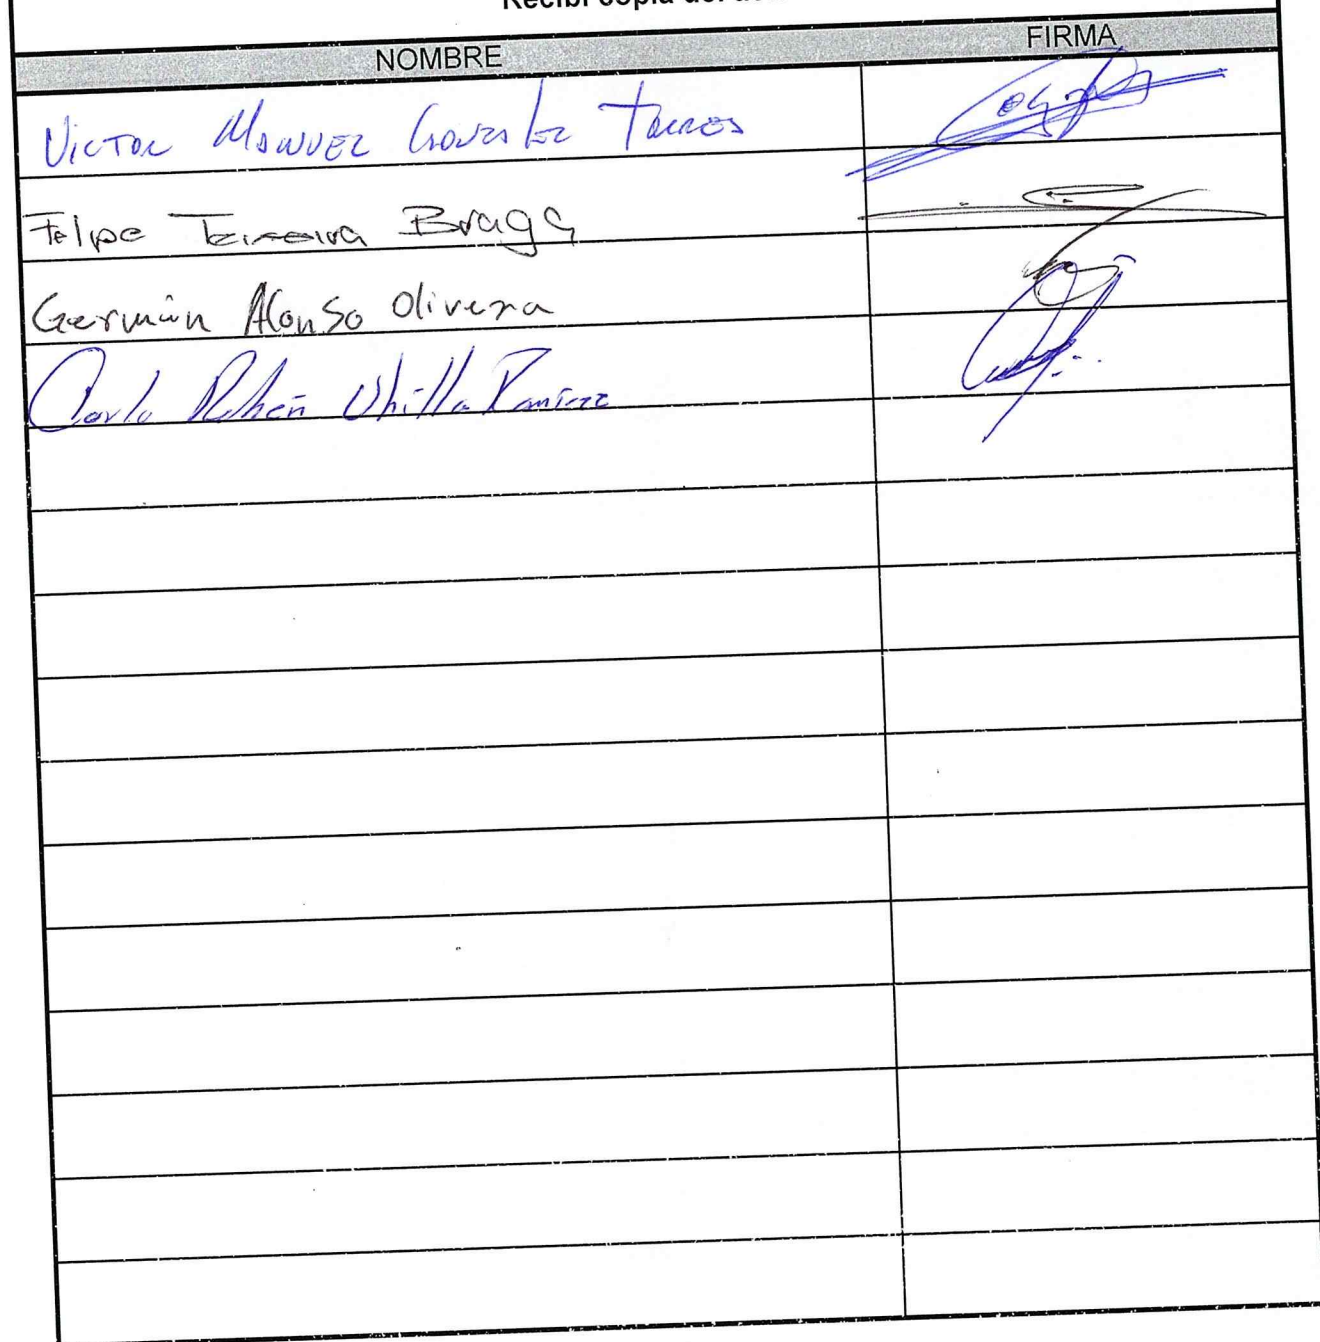 Recibí copia del
NOMBRE FIRMA
Victor Manuel Gonzalez Torres
Felipe Teixeira Braga
Germán Alonso Olivera
Carlo Rubén Ubilla Ramirez